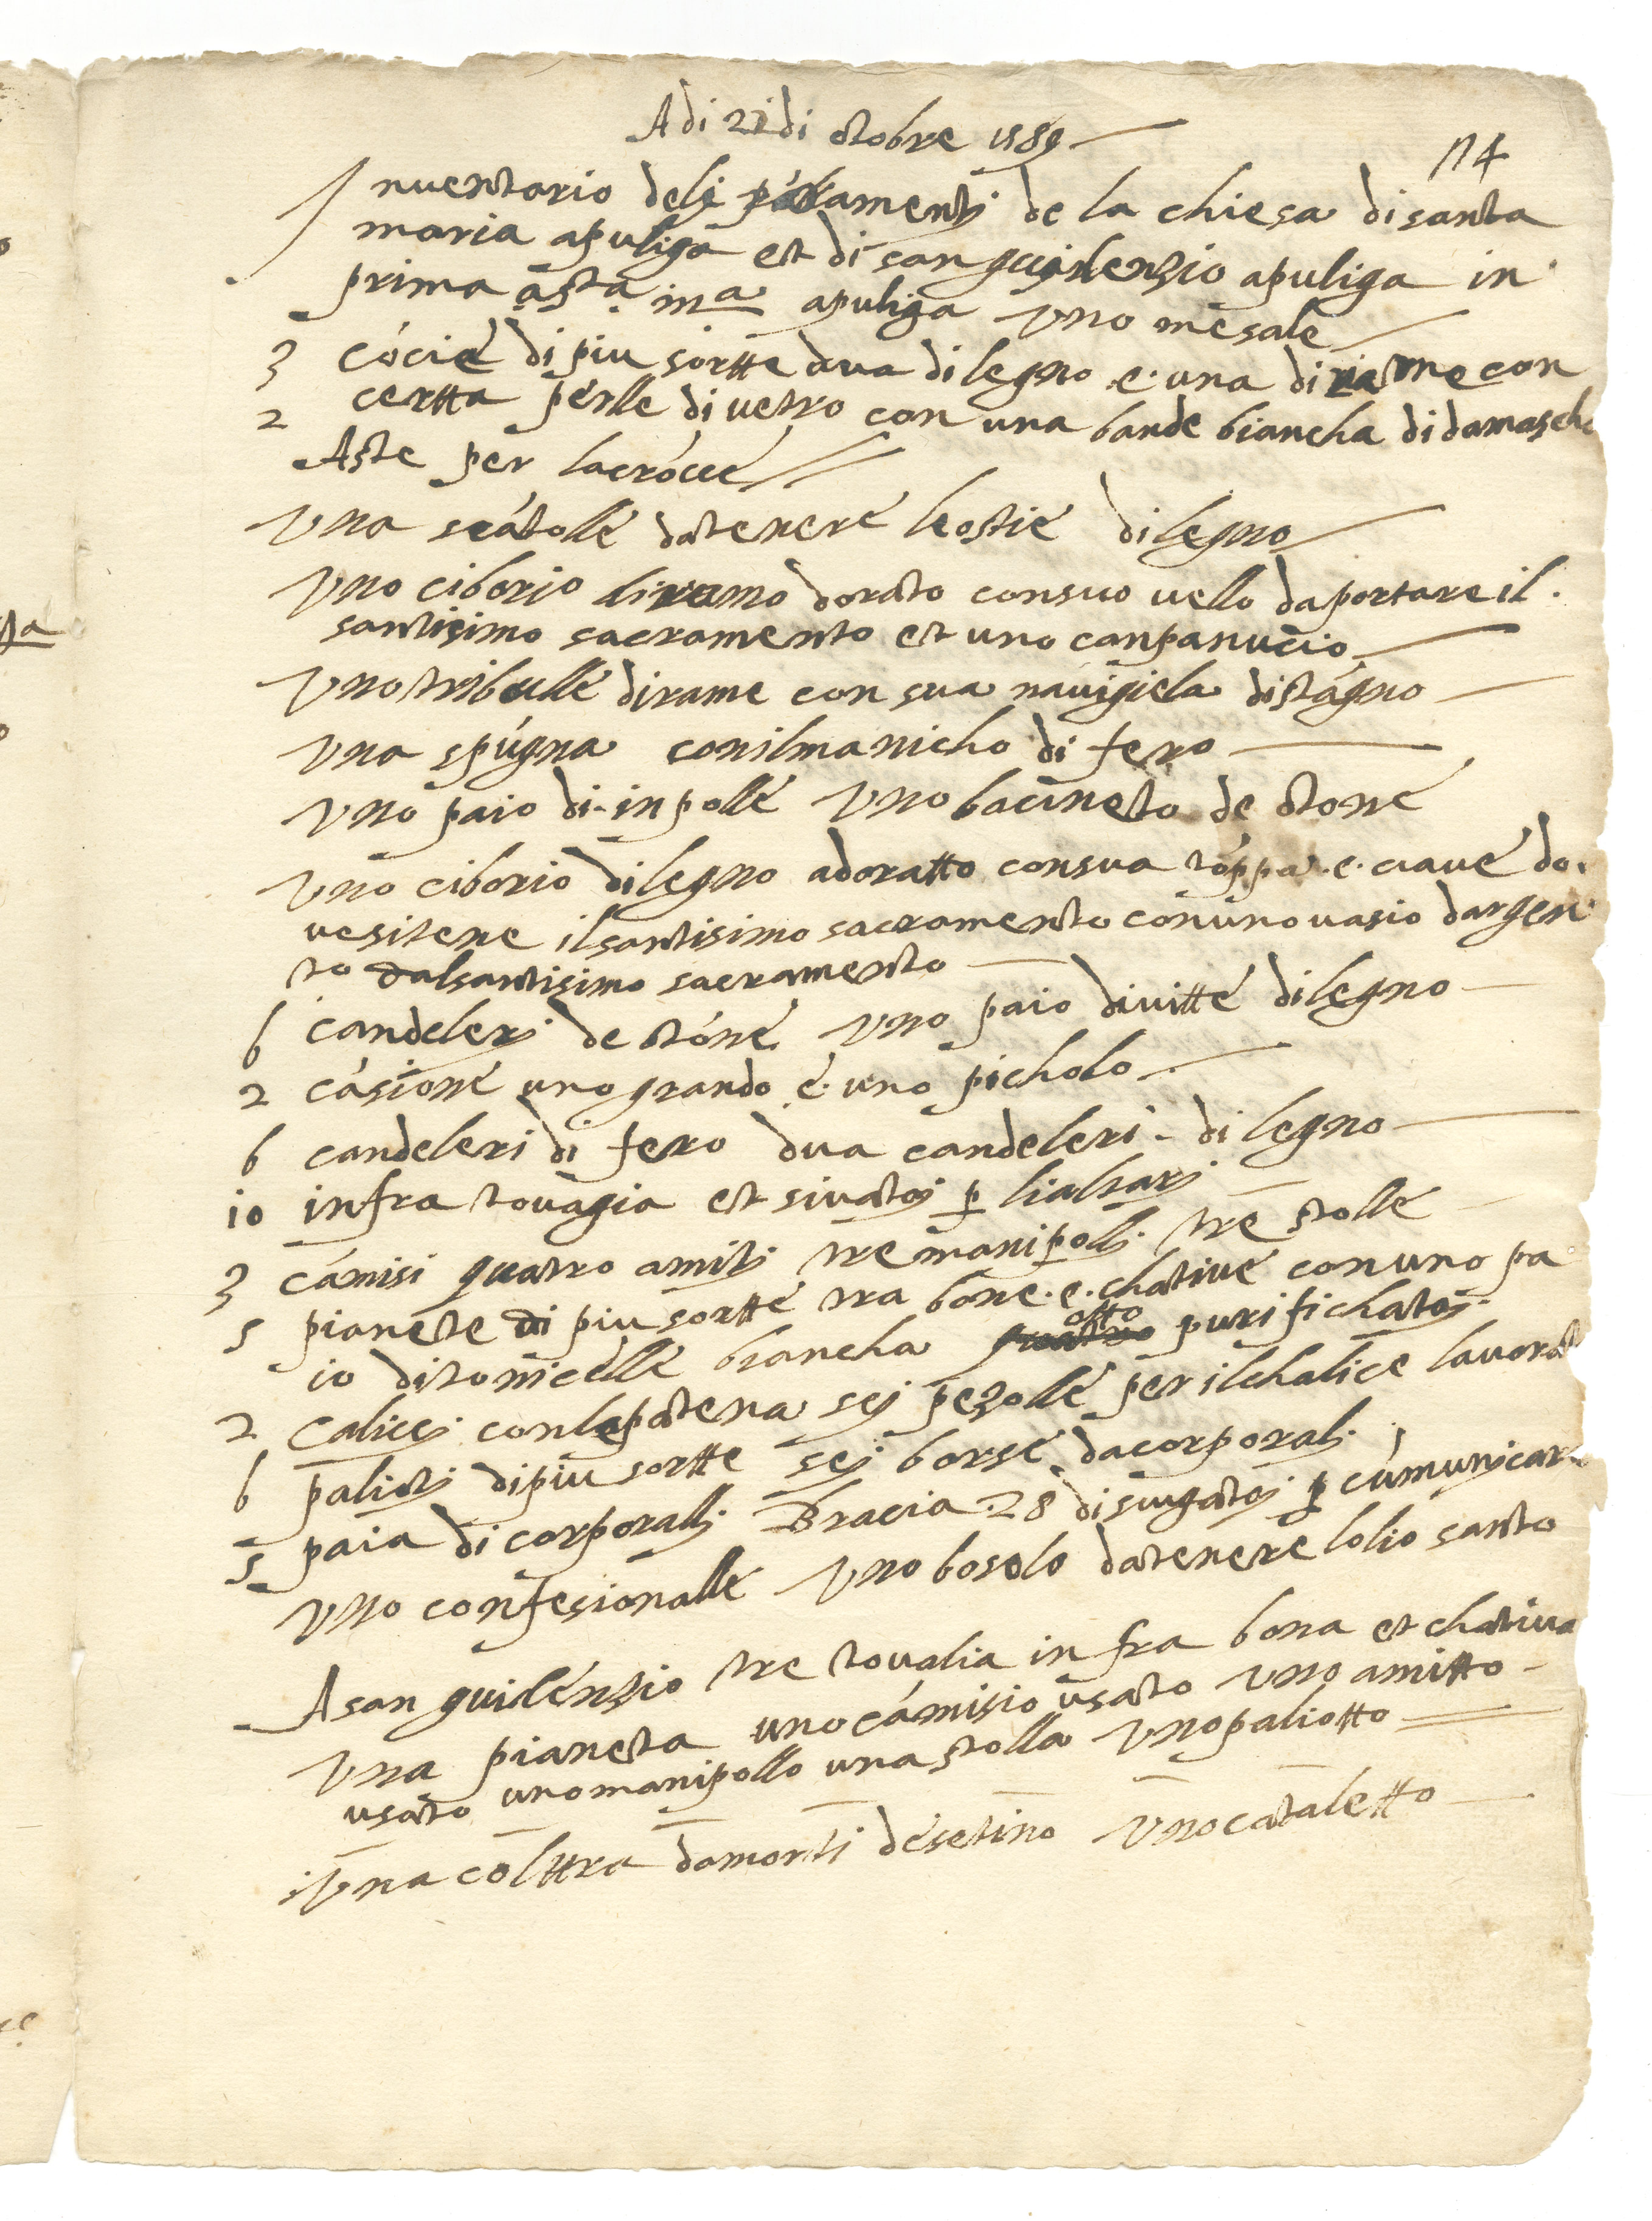 Adi 22 di otobre 1589
114
Inuentario deli paramenti de la chiesa di santa
maria apuliga et di san guilenzio apuliga in
prima asta ma apuliga Vno mesale
3 cócié di piu sortte dua di legno e una di rame con
certta perlle di uetro con una bande biancha di damascho
2 Aste per la crocié
Vna scátollé da tenere le ostié di legno
Vno ciborio di ramo dorato con suo uello da portare il
santisimo sacramento et uno canpanucio
Vno tribullé di rame con sua nauigiela di stágno
Vna spúgna con il manicho di fero
Vno paio di inpollé Vno bacineto de otoné
Vno ciborio di legno adoratto con sua toppa e ciaué do
ue si tene il santisimo sacramento con uno uasio dargen
to dal santisimo sacramento
6 candeleri de otóné Vno paio di uitté di legno
2 cásioné uno grando é uno picholo
6 candeleri di fero dua candeleri di legno
10 infra touagia et siuatoi p lialtari
3 cámisi quatro amiti tre manipolli tre stollé
5 pianete di piu sortté tra bone e chatiué con uno pa
io di tonicéllé biancha otto purifichatoi
2 calicei con le patena sei pezollé per il chalice lauorat
6 palioti di piu sortte sei borsé da corporali
5 paia di corporalli Bracia 28 di siugatoi p cumunicar
Vno confesionallé Vno bosolo da tenere lolio santo
A san guilénzio tre toualia infra bona et chatiua
Vna pianeta uno cámisio usato Vno amitto
usato uno manipollo una stolla Vno paliotto
Vna colttra da morti dé setino Vno cataletto